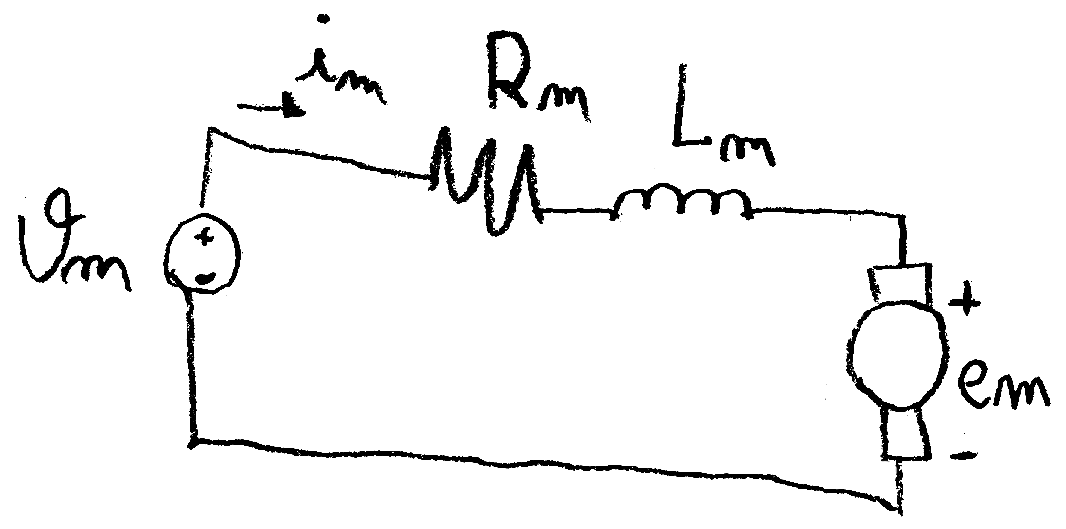 im
Rm
Lm
vm
+
-
+
em
-